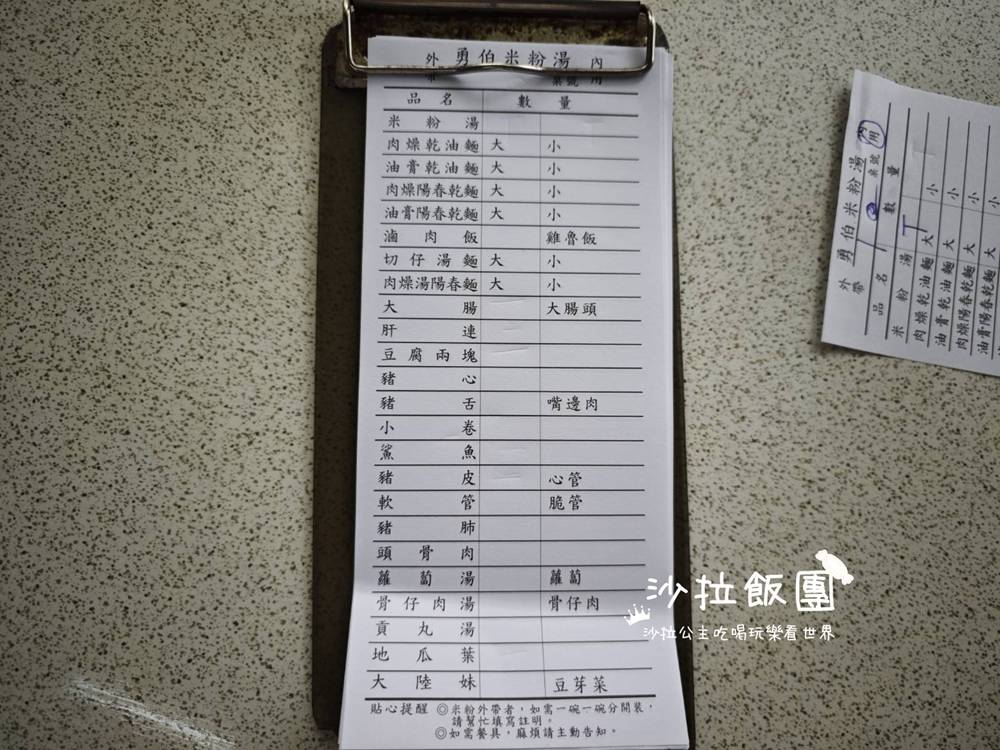 外 勇伯米粉湯 內
帶 桌號 用
品名 數量
米粉湯
肉燥乾油麵 大 小
油膏乾油麵 大 小
肉燥陽春乾麵 大 小
油膏陽春乾麵 大 小
滷肉飯 雞魯飯
切仔湯麵 大 小
肉燥湯陽春麵 大 小
大腸 大腸頭
肝連
豆腐兩塊
豬心
豬舌 嘴邊肉
小卷
鯊魚
豬皮 心管
軟管 脆管
豬肺
頭骨肉
蘿蔔湯 蘿蔔
骨仔肉湯 骨仔肉
貢丸湯
地瓜葉
大陸妹 豆芽菜
貼心提醒 ◎米粉外帶者，如需一碗一碗分開裝，
請幫忙填寫註明。
◎如需餐具，麻煩請主動告知。
外 勇伯米粉湯 內
帶 桌號 用
品名 數量
米粉湯
肉燥乾油麵 大 小
油膏乾油麵 大 小
肉燥陽春乾麵 大 小
油膏陽春乾麵 大 小
沙拉飯團
沙拉公主吃喝玩樂看世界